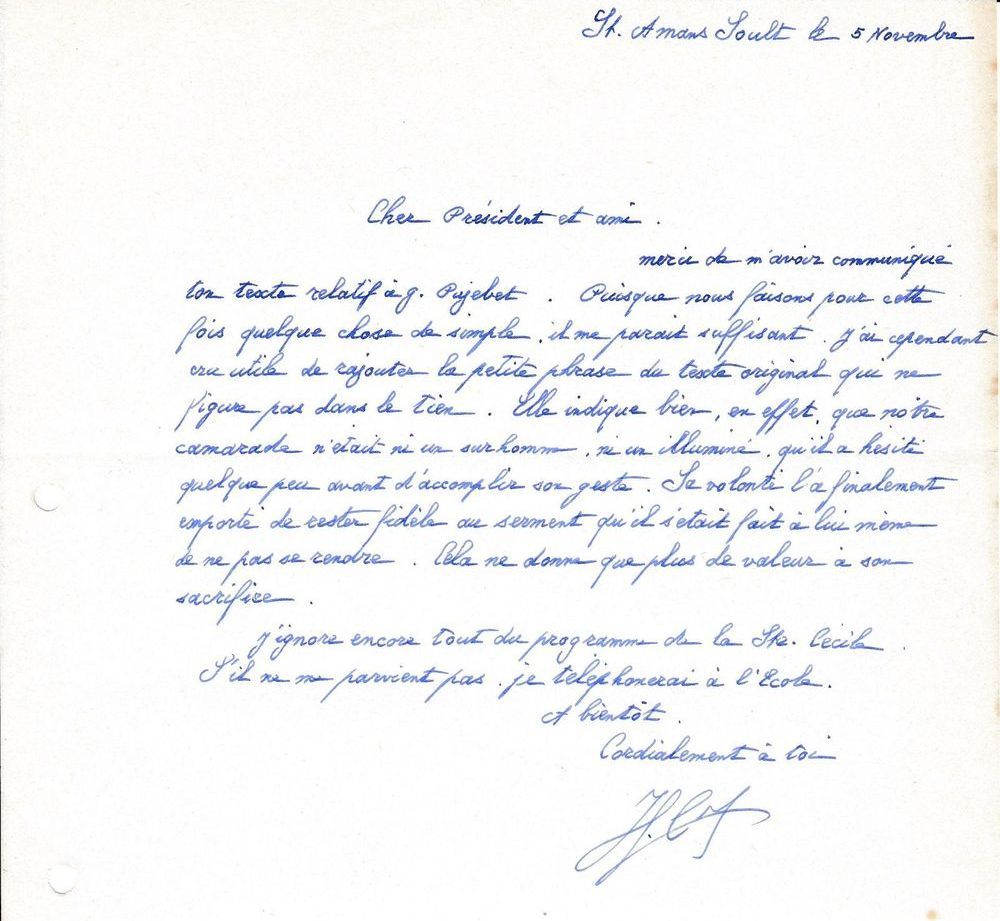 St. Amans Soult le 5 Novembre
Cher Président et ami.
merci de m'avoir communiqué
ton texte relatif à g. Pujebet. Puisque nous faisons pour cette
fois quelque chose de simple, il me parait suffisant. J'ai cependant
cru utile de rajouter la petite phrase du texte original qui ne
figure pas dans le tien. Elle indique bien, en effet, que nôtre
camarade n'était ni un surhomme, ni un illuminé, qu'il a hésité
quelque peu avant d'accomplir son geste. Sa volonté l'a finalement
emporté de rester fidèle au serment qu'il s'était fait à lui même
de ne pas se rendre. Cela ne donne que plus de valeur à son
sacrifice.
J'ignore encore tout du programme de la Ste. Cécile.
S'il ne me parvient pas, je téléphonerai à l'Ecole.
A bientôt.
Cordialement à toi